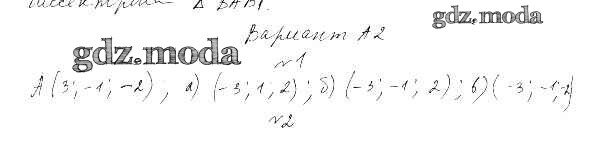 биссектриса Δ ВАВ1.
gdz.moda
Вариант А2
gdz.moda
№1
А (3; -1; -2); а) (-3; 1; 2); б) (-3; -1; 2); в) (-3; -1; -2)
№2